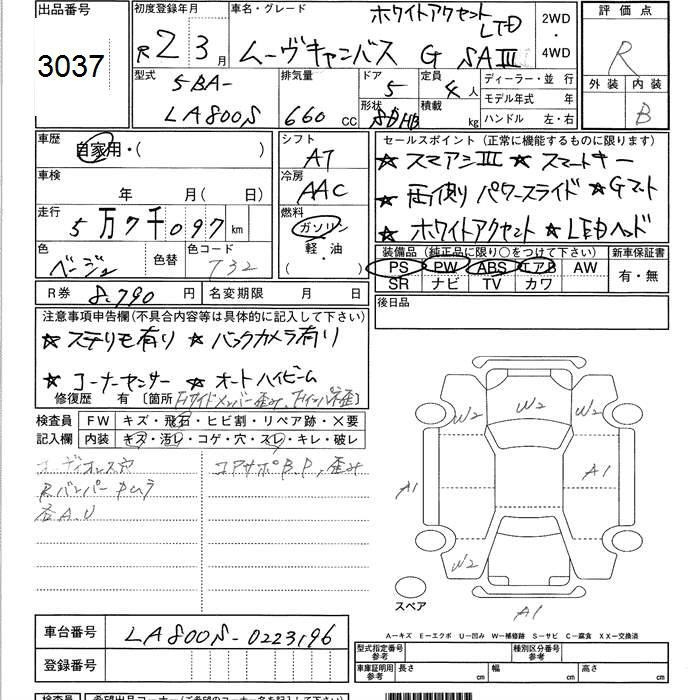 出品番号
3037
初度登録年月
R 2 3月
車名・グレード
ホワイトアクセントLTD
ムーヴキャンバス G SAⅢ
2WD
・
4WD
評価点
R
外装 内装
B
型式
5BA-
LA800S
排気量
660 cc
ドア
5
形状
5DHB
定員
4人
積載
kg
ディーラー・並 行
モデル年式 年
ハンドル 左・右
車歴
自家用・( )
車検
年 月( 日)
走行
5万7千097 km
色
ベージュ
色替
色コード
T32
R券 8,790 円
名変期限 月 日
シフト
AT
冷房
AAC
燃料
ガソリン
軽・油
( )
セールスポイント (正常に機能するものに限ります)
★スマアシⅢ ★スマートキー
★両側パワースライド ★Gマット
★ホワイトアクセント ★LEDヘッド
装備品 (純正品に限り〇をつけて下さい)
PS PW ABS エアB AW
SR ナビ TV カワ
新車保証書
有・無
後日品
注意事項申告欄(不具合内容等は具体的に記入して下さい)
★ステリモ有り ★バックカメラ有り
★コーナーセンサー ★オートハイビーム
修復歴 有 〔箇所
検査員
記入欄
FW キズ・飛石・ヒビ割・リペア跡・×要
内装 キズ・汚レ・コゲ・穴・スレ・キレ・破レ
コアサポB.P,歪み
RバンパーTムラ
各A.U
W2 W2 W2
A1 A1
W2
A1
スペア
A-キズ E-エクボ U-凹み W-補修跡 S-サビ C-腐食 XX-交換済
車台番号
LA800S-0223196
登録番号
型式指定番号
参考
種別区分番号
参考
車庫証明用
参考
長さ cm 幅 cm 高さ cm
検査員
希望出品コーナー(ご希望のコーナー名を記入して下さい)